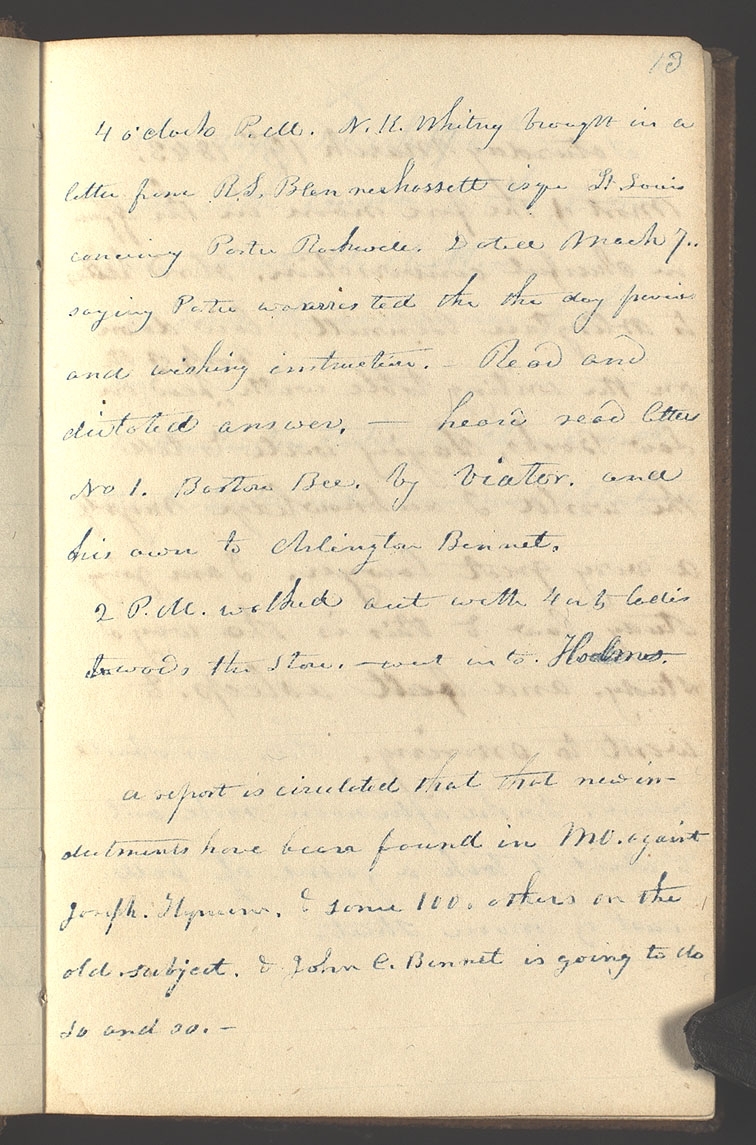 13
4 o'clock P.M. N. K. Whitney brought in a
letter from R. S. Blennerhassett esqr St. Louis
concerning Porter Rockwell. Dated March 7..
saying Porter was arristed the the day previous
and wishing instruction. — Read and
dictated answer. — heard read letter
No 1. Boston Bee. by Viator. and
his own to Arlington Bennet.
2 P.M. walked out with 4 or 5 ladies
towards the store. — went in to Holmes.
a report is circulated that that new in-
dictments have been found in MO. against
Joseph. Hyrum. & some 100. others on the
old subject. & John C. Bennet is going to do
so and so. —